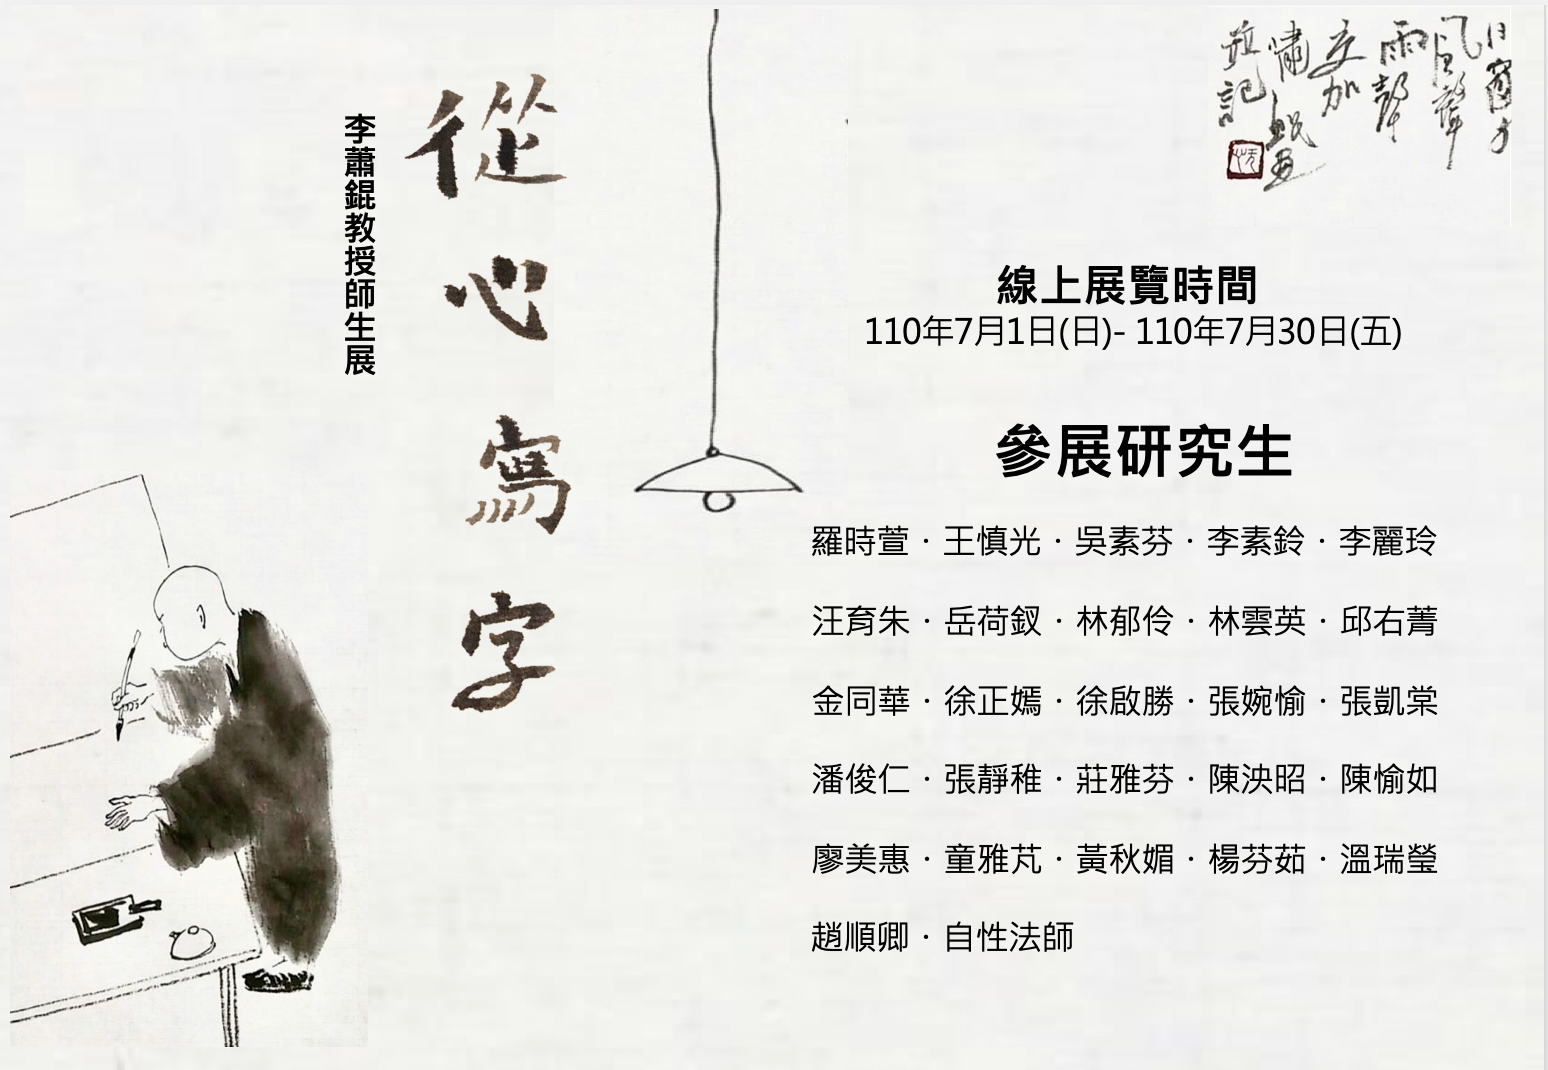 從心寫字
李蕭錕教授師生展
風聲
雨聲
交加
嘯錕畫
並記
線上展覽時間
110年7月1日(日)- 110年7月30日(五)
參展研究生
羅時萱．王慎光．吳素芬．李素鈴．李麗玲
汪育朱．岳荷釵．林郁伶．林雲英．邱右菁
金同華．徐正嫣．徐啟勝．張婉愉．張凱棠
潘俊仁．張靜稚．莊雅芬．陳泱昭．陳愉如
廖美惠．童雅芃．黃秋媚．楊芬茹．溫瑞瑩
趙順卿．自性法師